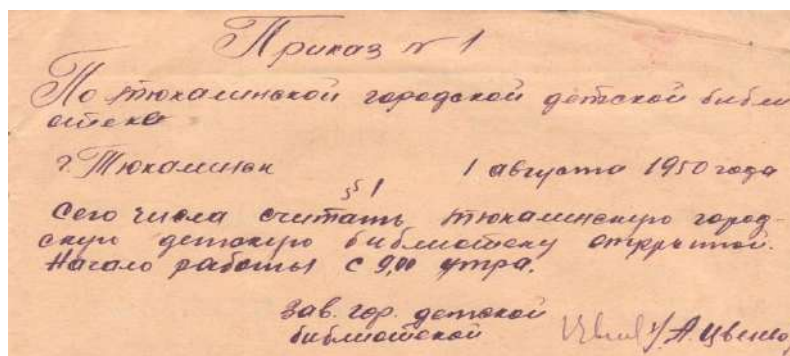 Приказ № 1
По Тюкалинской городской детской библи
отеке
г. Тюкалинск 1 августа 1950 года
§ 1
Сего числа считать Тюкалинскую город-
скую детскую библиотеку открытой.
Начало работы с 9,00 утра.
Зав. гор. детской
библиотекой /А. Цвенко